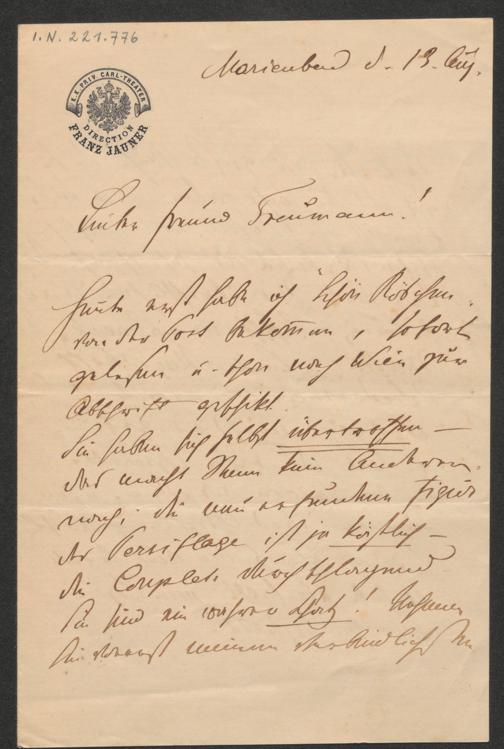 I.N. 221.776
K.K. PRIV. CARL-THEATER
DIRECTION
FRANZ JAUNER
Marienbad d. 13. Aug.
Lieber Freund Treumann!
Heute erst habe ich "Schön Röschen"
von der Post bekommen, sofort
gelesen u. schon nach Wien zur
Abschrift geschikt.
Sie haben sich selbst übertroffen –
das macht Ihnen kein Anderer
nach; die neu erfundene Figur
der Persiflage ist ja köstlich –
die Couplets durchschlagend
Sie sind ein wahrer! Nehmen
Sie vorerst meinen verbindlichsten